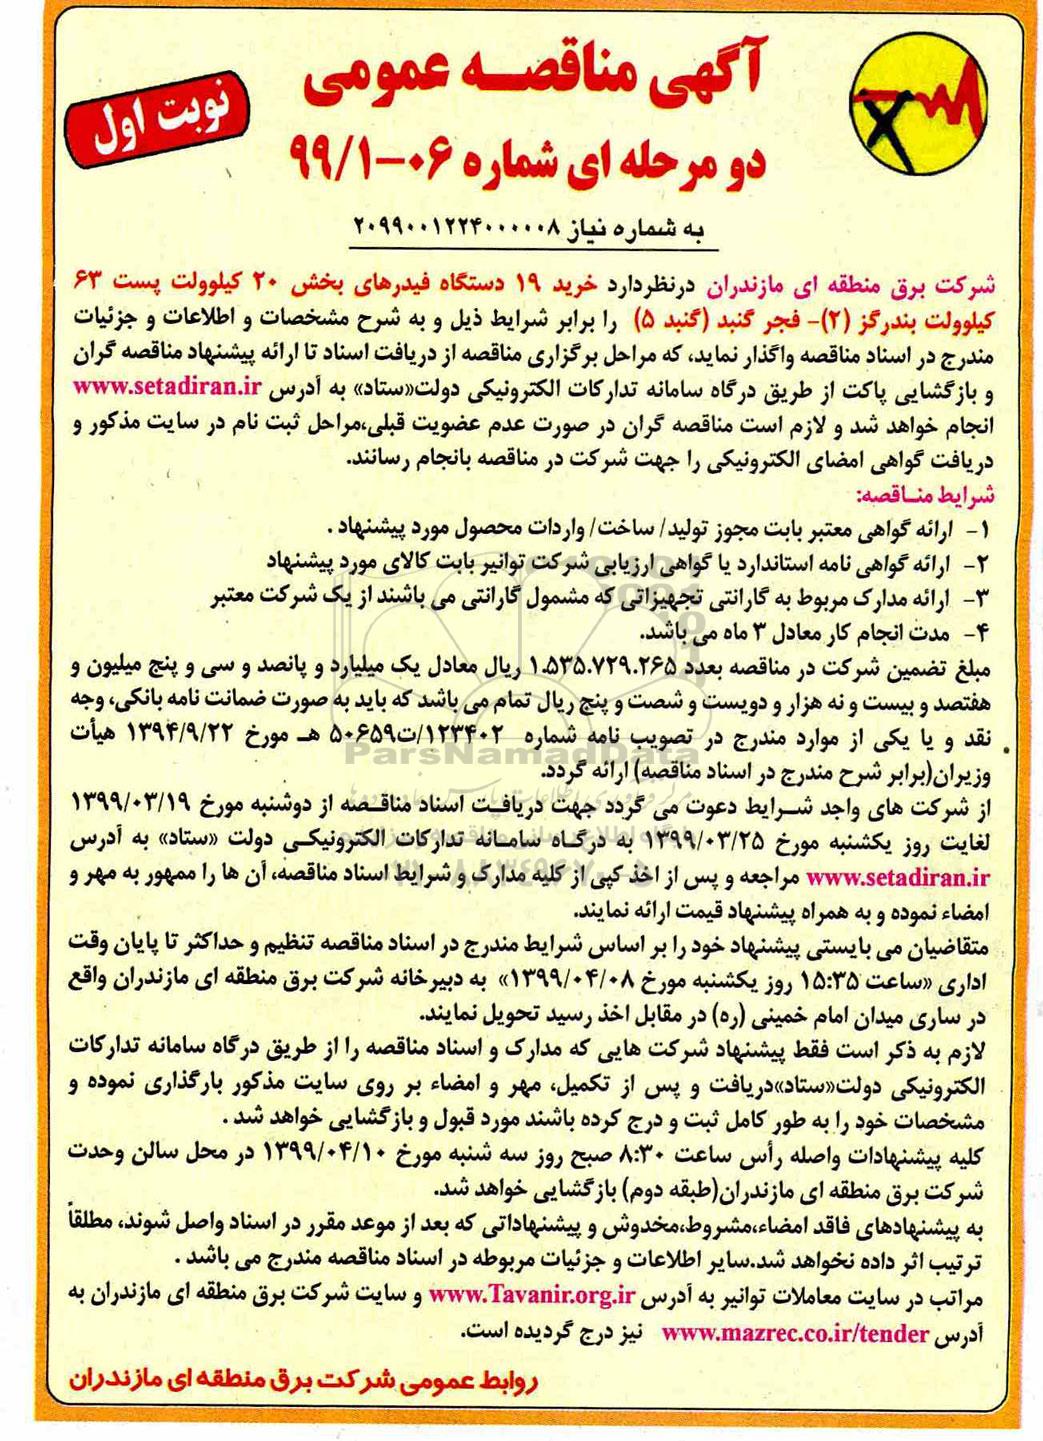 آگهی مناقصه عمومی
نوبت اول
دو مرحله ای شماره ۰۶-۹۹/۱
به شماره نیاز ۲۰۹۹۰۰۱۲۲۴۰۰۰۰۰۸
شرکت برق منطقه ای مازندران درنظردارد خرید ۱۹ دستگاه فیدرهای بخش ۲۰ کیلوولت پست ۶۳
کیلوولت بندرگز (۲)- فجر گنبد (گنبد ۵) را برابر شرایط ذیل و به شرح مشخصات و اطلاعات و جزئیات
مندرج در اسناد مناقصه واگذار نماید، که مراحل برگزاری مناقصه از دریافت اسناد تا ارائه پیشنهاد مناقصه گران
و بازگشایی پاکت از طریق درگاه سامانه تدارکات الکترونیکی دولت«ستاد» به آدرس www.setadiran.ir
انجام خواهد شد و لازم است مناقصه گران در صورت عدم عضویت قبلی،مراحل ثبت نام در سایت مذکور و
دریافت گواهی امضای الکترونیکی را جهت شرکت در مناقصه بانجام رسانند.
شرایط مناقصه:
۱- ارائه گواهی معتبر بابت مجوز تولید/ ساخت/ واردات محصول مورد پیشنهاد .
۲- ارائه گواهی نامه استاندارد یا گواهی ارزیابی شرکت توانیر بابت کالای مورد پیشنهاد
۳- ارائه مدارک مربوط به گارانتی تجهیزاتی که مشمول گارانتی می باشند از یک شرکت معتبر
۴- مدت انجام کار معادل ۳ ماه می باشد.
مبلغ تضمین شرکت در مناقصه بعدد ۱.۵۳۵.۷۲۹.۲۶۵ ریال معادل یک میلیارد و پانصد و سی و پنج میلیون و
هفتصد و بیست و نه هزار و دویست و شصت و پنج ریال تمام می باشد که باید به صورت ضمانت نامه بانکی، وجه
نقد و یا یکی از موارد مندرج در تصویب نامه شماره ۱۲۳۴۰۲/ت۵۰۶۵۹ هـ مورخ ۱۳۹۴/۹/۲۲ هیأت
وزیران(برابر شرح مندرج در اسناد مناقصه) ارائه گردد.
از شرکت های واجد شرایط دعوت می گردد جهت دریافت اسناد مناقصه از دوشنبه مورخ ۱۳۹۹/۰۳/۱۹
لغایت روز یکشنبه مورخ ۱۳۹۹/۰۳/۲۵ به درگاه سامانه تدارکات الکترونیکی دولت «ستاد» به آدرس
www.setadiran.ir مراجعه و پس از اخذ کپی از کلیه مدارک و شرایط اسناد مناقصه، آن ها را ممهور به مهر و
امضاء نموده و به همراه پیشنهاد قیمت ارائه نمایند.
متقاضیان می بایستی پیشنهاد خود را بر اساس شرایط مندرج در اسناد مناقصه تنظیم و حداکثر تا پایان وقت
اداری «ساعت ۱۵:۳۵ روز یکشنبه مورخ ۱۳۹۹/۰۴/۰۸» به دبیرخانه شرکت برق منطقه ای مازندران واقع
در ساری میدان امام خمینی (ره) در مقابل اخذ رسید تحویل نمایند.
لازم به ذکر است فقط پیشنهاد شرکت هایی که مدارک و اسناد مناقصه را از طریق درگاه سامانه تدارکات
الکترونیکی دولت«ستاد»دریافت و پس از تکمیل، مهر و امضاء بر روی سایت مذکور بارگذاری نموده و
مشخصات خود را به طور کامل ثبت و درج کرده باشند مورد قبول و بازگشایی خواهد شد .
کلیه پیشنهادات واصله رأس ساعت ۸:۳۰ صبح روز سه شنبه مورخ ۱۳۹۹/۰۴/۱۰ در محل سالن وحدت
شرکت برق منطقه ای مازندران(طبقه دوم) بازگشایی خواهد شد.
به پیشنهادهای فاقد امضاء،مشروط،مخدوش و پیشنهاداتی که بعد از موعد مقرر در اسناد واصل شوند، مطلقاً
ترتیب اثر داده نخواهد شد.سایر اطلاعات و جزئیات مربوطه در اسناد مناقصه مندرج می باشد .
مراتب در سایت معاملات توانیر به آدرس www.Tavanir.org.ir و سایت شرکت برق منطقه ای مازندران به
آدرس www.mazrec.co.ir/tender نیز درج گردیده است.
روابط عمومی شرکت برق منطقه ای مازندران
ParsNamadData